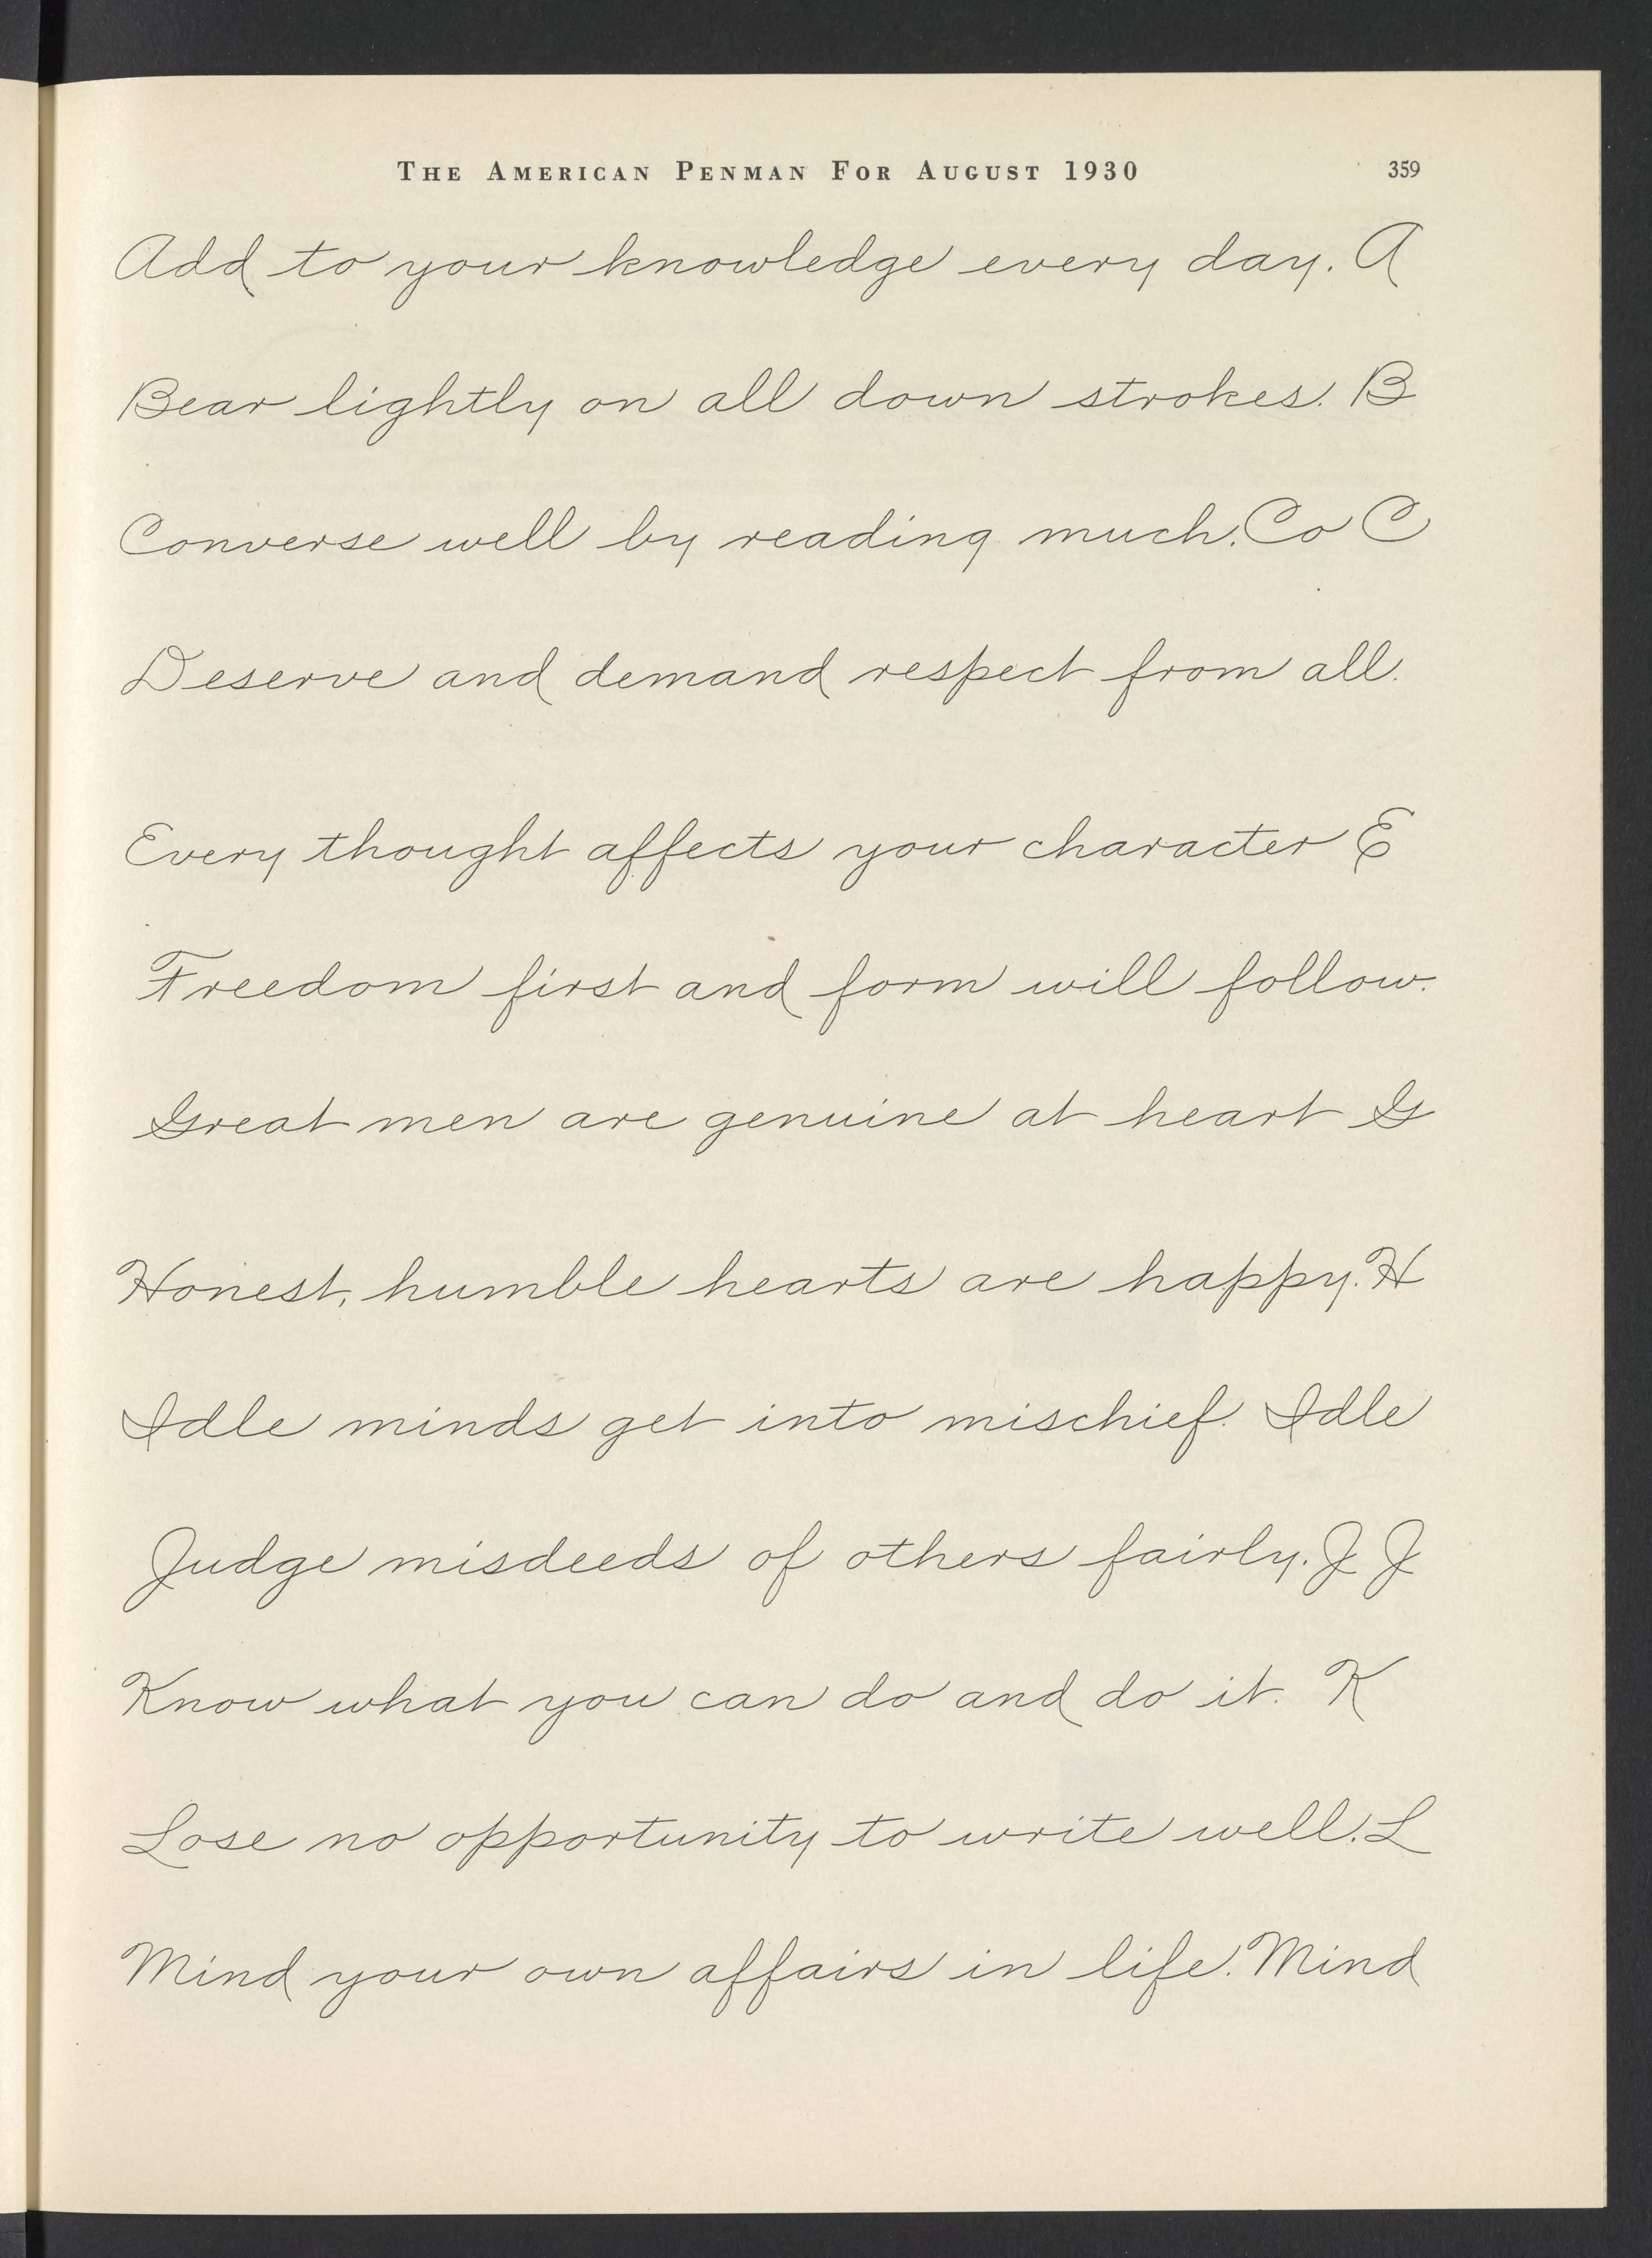 THE AMERICAN PENMAN FOR AUGUST 1930 359
Add to your knowledge every day. A
Bear lightly on all down strokes. B
Converse well by reading much. Co C
Deserve and demand respect from all.
Every thought affects your character E
Freedom first and form will follow.
Great men are genuine at heart G
Honest, humble hearts are happy. H
Idle minds get into mischief. Idle
Judge misdeeds of others fairly. J J
Know what you can do and do it. K
Lose no opportunity to write well. L
Mind your own affairs in life. Mind